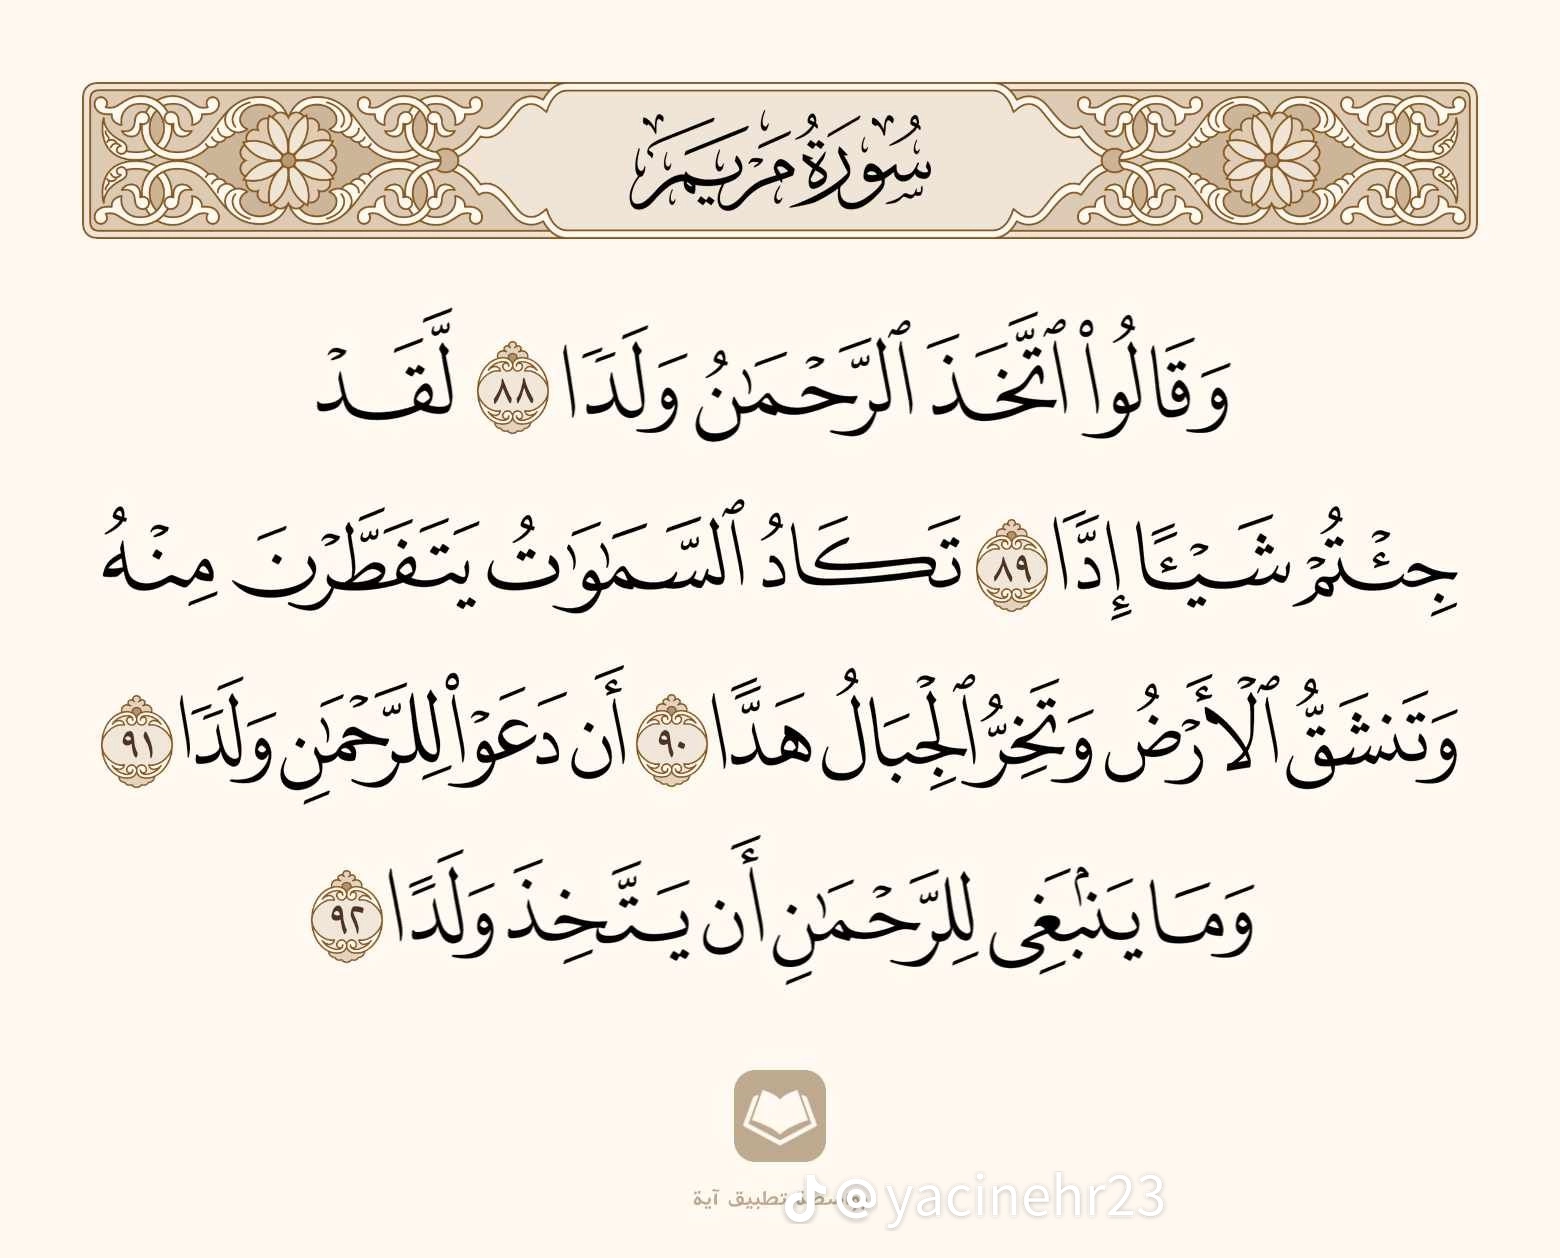 سُورَةُ مَرْيَمَ
وَقَالُوا۟ ٱتَّخَذَ ٱلرَّحْمَـٰنُ وَلَدًۭا ٨٨ لَّقَدْ
جِئْتُمْ شَيْـًٔا إِدًّۭا ٨٩ تَكَادُ ٱلسَّمَـٰوَٰتُ يَتَفَطَّرْنَ مِنْهُ
وَتَنشَقُّ ٱلْأَرْضُ وَتَخِرُّ ٱلْجِبَالُ هَدًّا ٩٠ أَن دَعَوْا۟ لِلرَّحْمَـٰنِ وَلَدًۭا ٩١
وَمَا يَنۢبَغِى لِلرَّحْمَـٰنِ أَن يَتَّخِذَ وَلَدًا ٩٢
بواسطة تطبيق آية
@yacinehr23